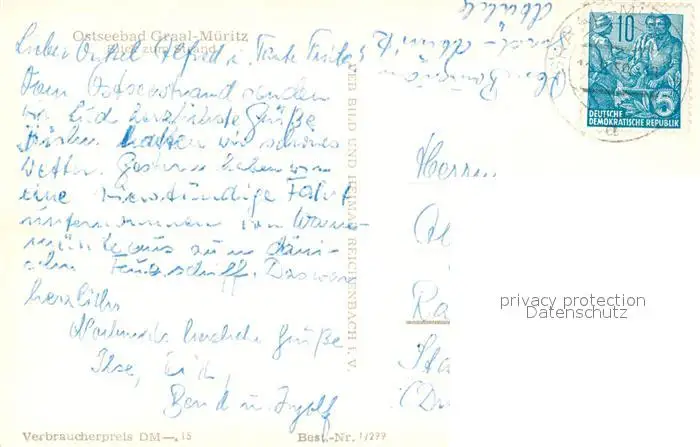 Ostseebad Graal-Müritz
Blick zum Strand
Lieber Onkel Alfred u. Tante Frieda
Vom Ostseestrand senden
wir Euch herzlichste Grüße
Bisher hatten wir schönes
Wetter. Gestern haben wir
eine vierstündige Fahrt
unternommen von Warne-
münde aus zum däni-
schen Feuerschiff. Das war
herrlich.
Nochmals herzliche Grüße
Ilse, Erich,
Bernd u. Ingolf
Verbraucherpreis DM —,15
Best.-Nr. 1/299
VEB BILD UND HEIMAT REICHENBACH I. V.
Graal-Müritz
10
5
DEUTSCHE
DEMOKRATISCHE REPUBLIK
Herrn
Ra
Sta
privacy protection
Datenschutz